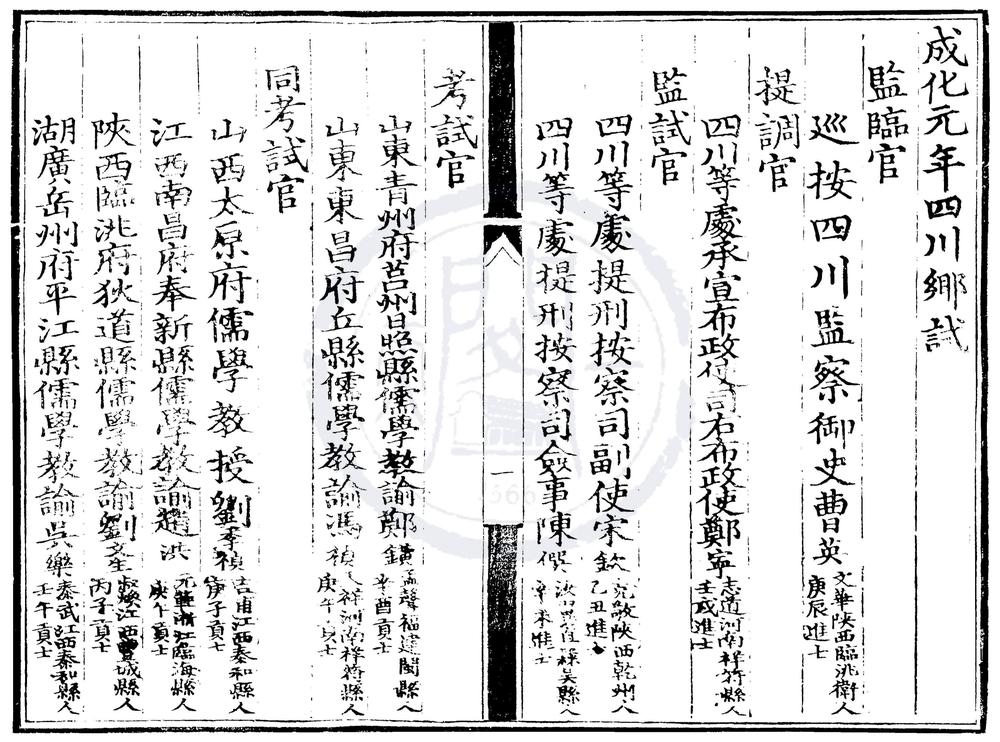 成化元年四川鄉試
監臨官
巡按四川監察御史曹英 文華陝西臨洮衛人 庚辰進士
提調官
四川等處承宣布政使司右布政使鄭寧 志道河南祥符縣人 壬戌進士
監試官
四川等處提刑按察司副使宋欽 克敬陝西乾州人 乙丑進士
四川等處提刑按察司僉事陳僎 直隸吳縣人 辛未進士
一
考試官
山東青州府莒州日照縣儒學教諭鄭鏔 孟聲福建閩縣人 辛酉貢士
山東東昌府丘縣儒學教諭馮禎 河南祥符縣人 庚午貢士
同考試官
山西太原府儒學教授劉季禎 吉甫江西泰和縣人 庚子貢士
江西南昌府奉新縣儒學教諭趙洪 元範浙江臨海縣人 庚午貢士
陝西臨洮府狄道縣儒學教諭劉奎 江西豐城縣人 丙子貢士
湖廣岳州府平江縣儒學教諭吳樂 泰武江西泰和縣人 壬午貢士